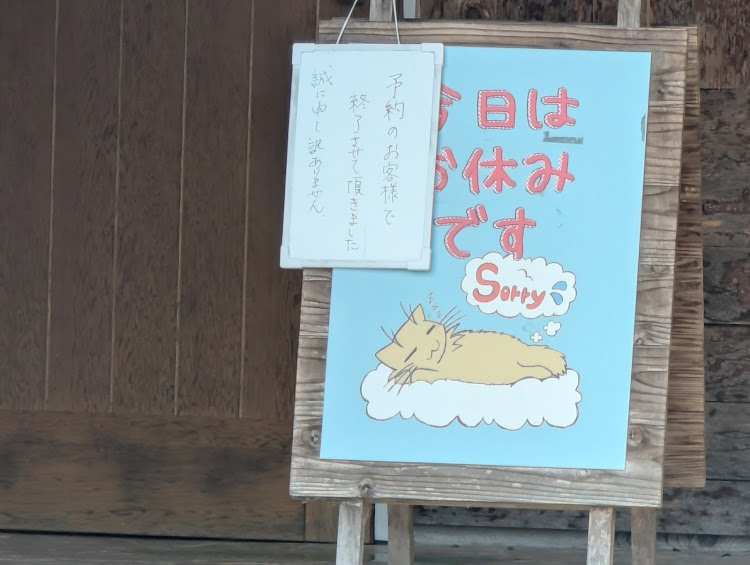 予約のお客様で
終了させて頂きました
誠に申し訳ありません.
今日は
お休み
です
Sorry